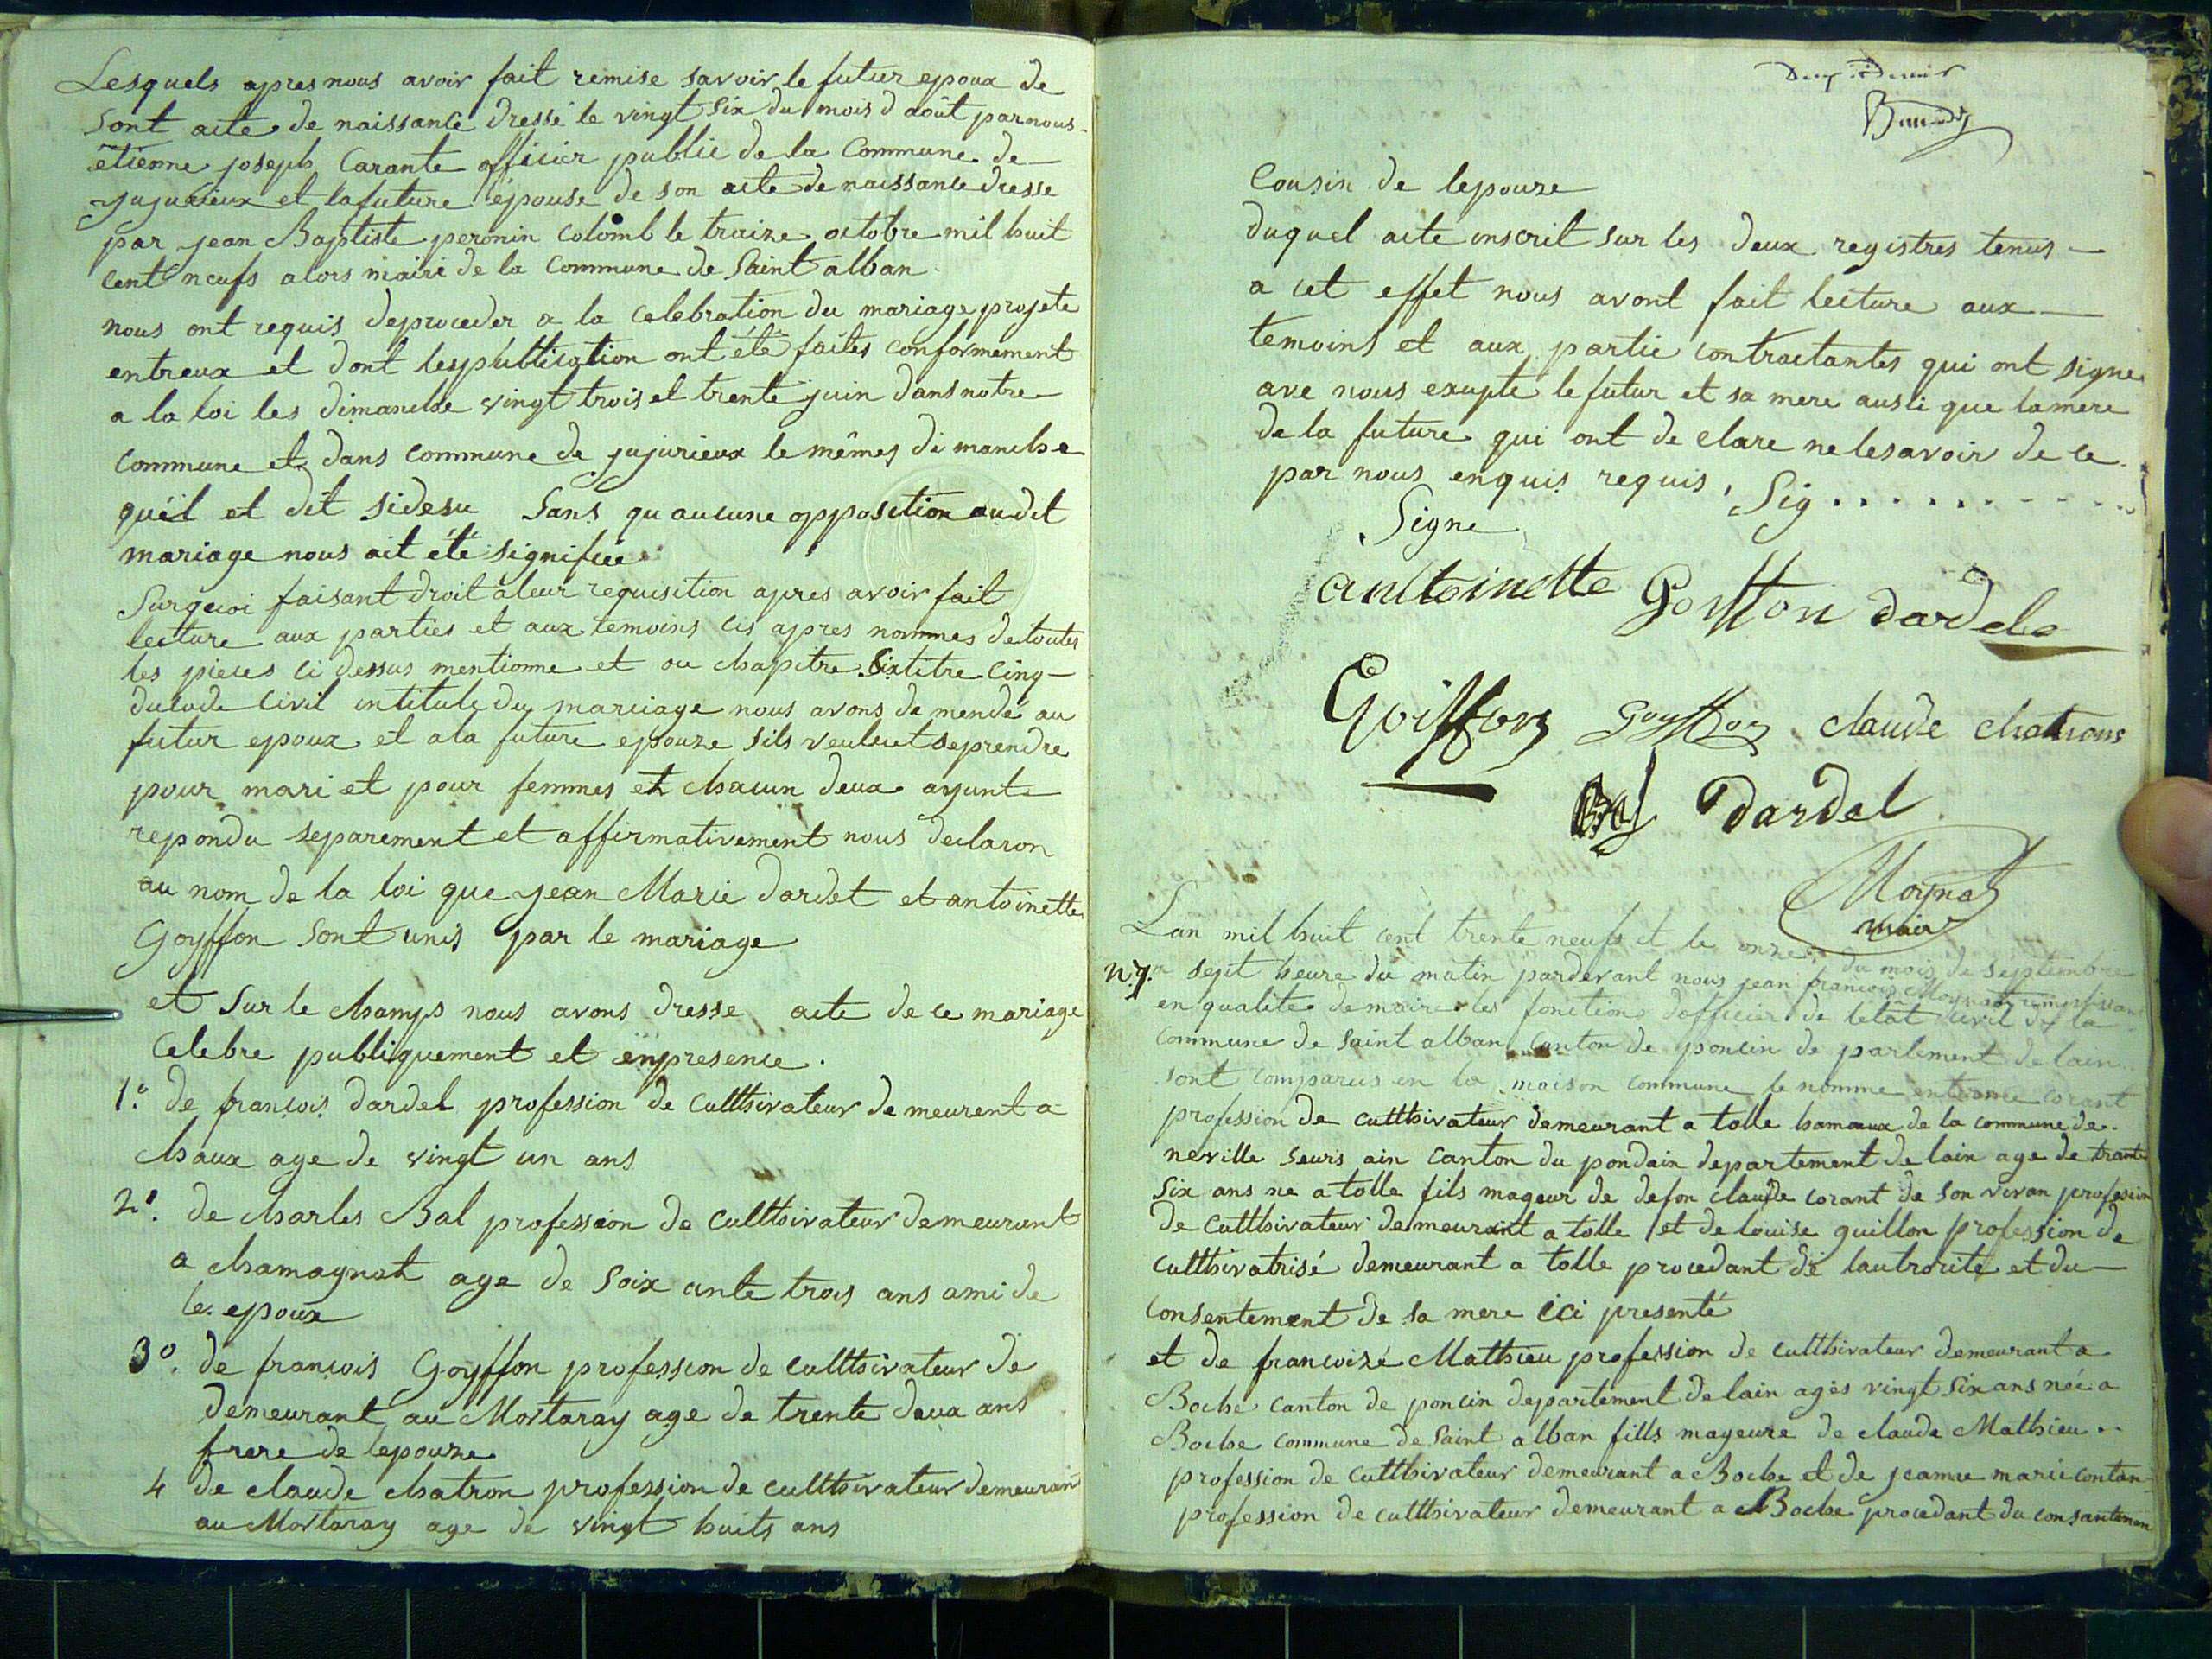 Lesquels apres nous avoir fait remise savoir le futur epoux de
sont acte de naissance dressé le vingt six du mois d août par nous
etienne joseph Carante officier public de la Commune de
jujurieux et la future épouse de son acte de naissance dresse
par jean Baptiste peronin colomb le traize octobre mil huit
cent neufs alors maire de la Commune de Saint alban
nous ont requis deproceder a la celebration du mariage projete
entreux et dont lespublication ont été faites conformement
a la loi les dimanche vingt trois et trente juin dans notre
commune et dans commune de jujurieux le mêmes dimanche
quéil et dit sidesu Sans qu aucune opposition audit
mariage nous ait été signifiée
Surquoi faisant droit aleur requisition apres avoir fait
lecture aux parties et aux temoins cis apres nommes de toutes
les pieces ci dessus mentionne et ou chapitre Six titre Cinq
ducode Civil intitule du marciage nous avons de mende au
futur epoux et a la future epouze sils veulent seprendre
pour mari et pour femmes et chacun deux ayant
repondu separement et affirmativement nous declaron
au nom de la loi que jean Marie dardet et antoinette
Goyffon sont unis par le mariage
et Sur le champs nous avons dresse acte de ce mariage
Celebre publiquement et enpresence.
1.° de francois dardel profession de Cultthivateur demeurent a
chaux age de vingt un ans
2.° de charles Bal profession de Culthivateur demeurant
a chamagnat age de soix ante trois ans ami de
le epoux
3°. de francois Goyffon profession de culthivateur de
demeurant au Mortaray age de trente deux ans
frere de lepouze
4 de claude chatron profession de cultthivateur demeurant
au Mortaray age de vingt huits ans
Cousin de lepouze
duquel acte inscrit sur les deux registres tenus
a cet effet nous avont fait lecture aux
temoins et aux partie contractantes qui ont signe
ave nous exupte le futur et sa mere ausi que lamere
de la future qui ont de clare ne lesavoir de ce
par nous enquis requis, Sig...........
Signe
antoinette Goiffon dardele
Goiffon Goyffon claude chatrons
Bal dardel
Moynat
maire
Lan mil huit cent trente neufs et le onze du mois de septembre
n.7. a sept heure du matin pardevant nous jean francois Moynat remplisant
en qualite de maire les fonction dofficier de letât civil de la
Commune de Saint alban Canton de poncin de partement de lain
sont comparus en la maison commune le nomme corant
profession de cultthivateur demeurant a tolle hameaux de la commune de
neville seuris ain canton du pondain departement de lain age de trante
six ans ne a tolle fils mageur de defon claude corant de son vivan profession
de Cultthivateur demeurant a tolle et de louise guillon profession de
cultthivatrisé demeurant a tolle procedant de lautrorite et du
consentement de sa mere ici presenté
et de francoizé Mathieu profession de cultthivateur demeurant a
Boche canton de poncin departement de lain agés vingt six ans née a
Boche commune de Saint alban fills mageure de claude Mathieu
profession de cultthivateur demeurant a Boche et de jeanne marie contan
profession de cultthivateur demeurant a Boche procedant du consantemen